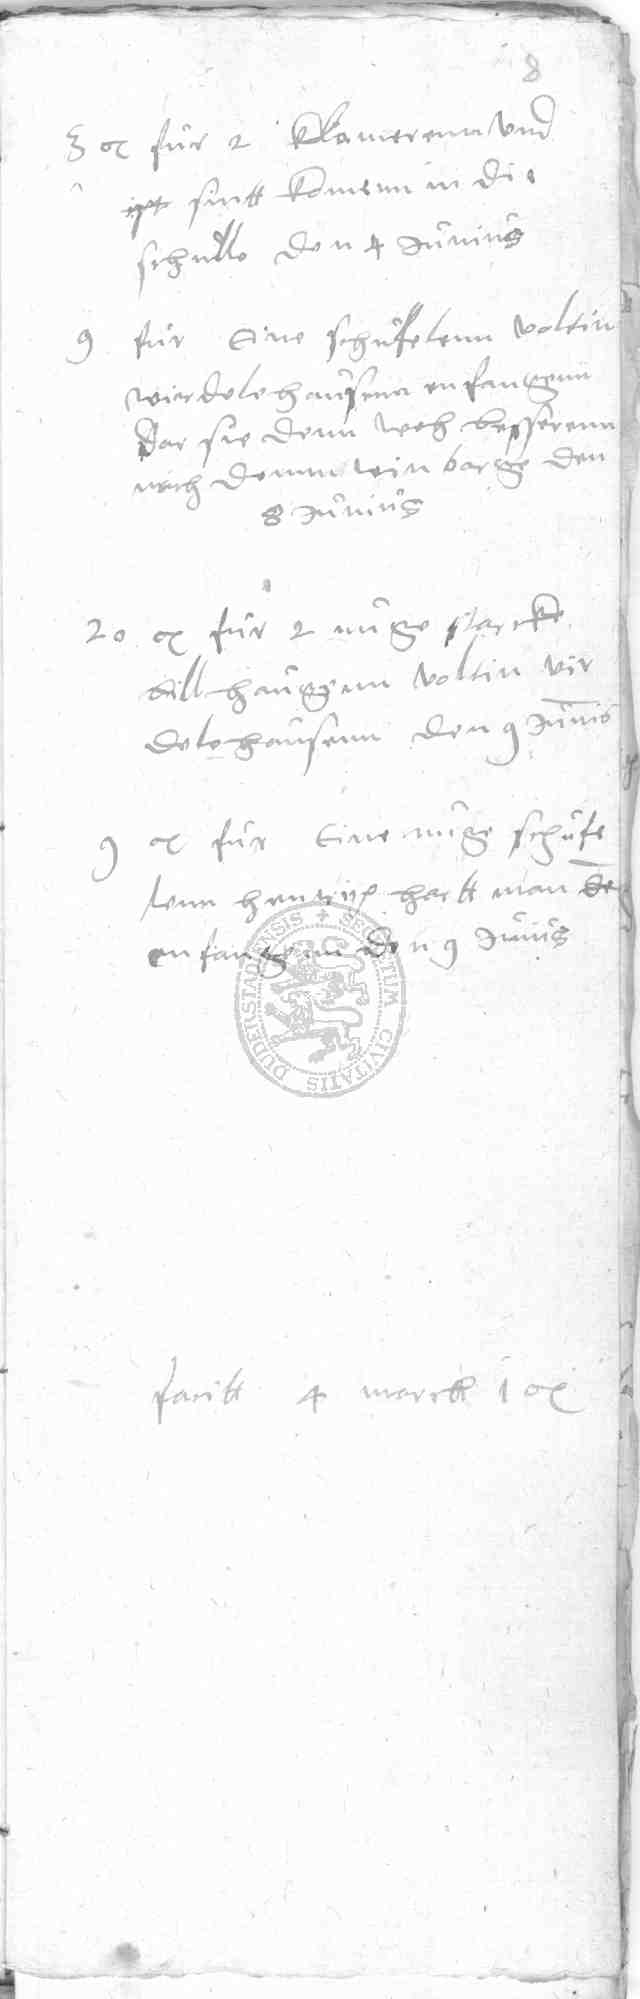 8
3 ₰ für 2 klamerenn vnd
ist sintt komenn in die
schulle den 4 Junius
9 für Eine schuffelenn Voltin
wirdeleshausenn enfangenn
dar sie denn weh besserenn
nach demm winbarge den
8 Junius
20 ₰ für 2 nuge starcke
bill haugenn Voltin vir
deleshausenn den 9 Junis
9 ₰ für Eine nuge schufe
lenn henrich hartt man
enfangenn den 9 Junius
SIGILLUM CIVITATIS DUDERSTADENSIS
facitt 4 marck 1 ₰